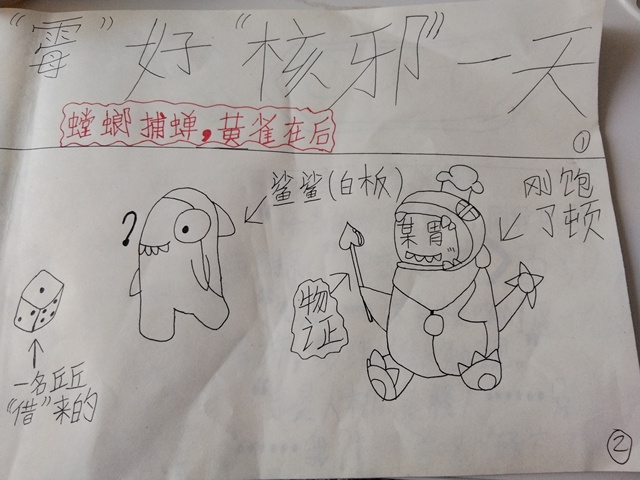 “霉”好“核邪”一天
螳螂捕蝉,黄雀在后
①
鲨鲨(白板)
刚饱
了顿
某胃
?
物
证
一名丘丘
“借”来的
②